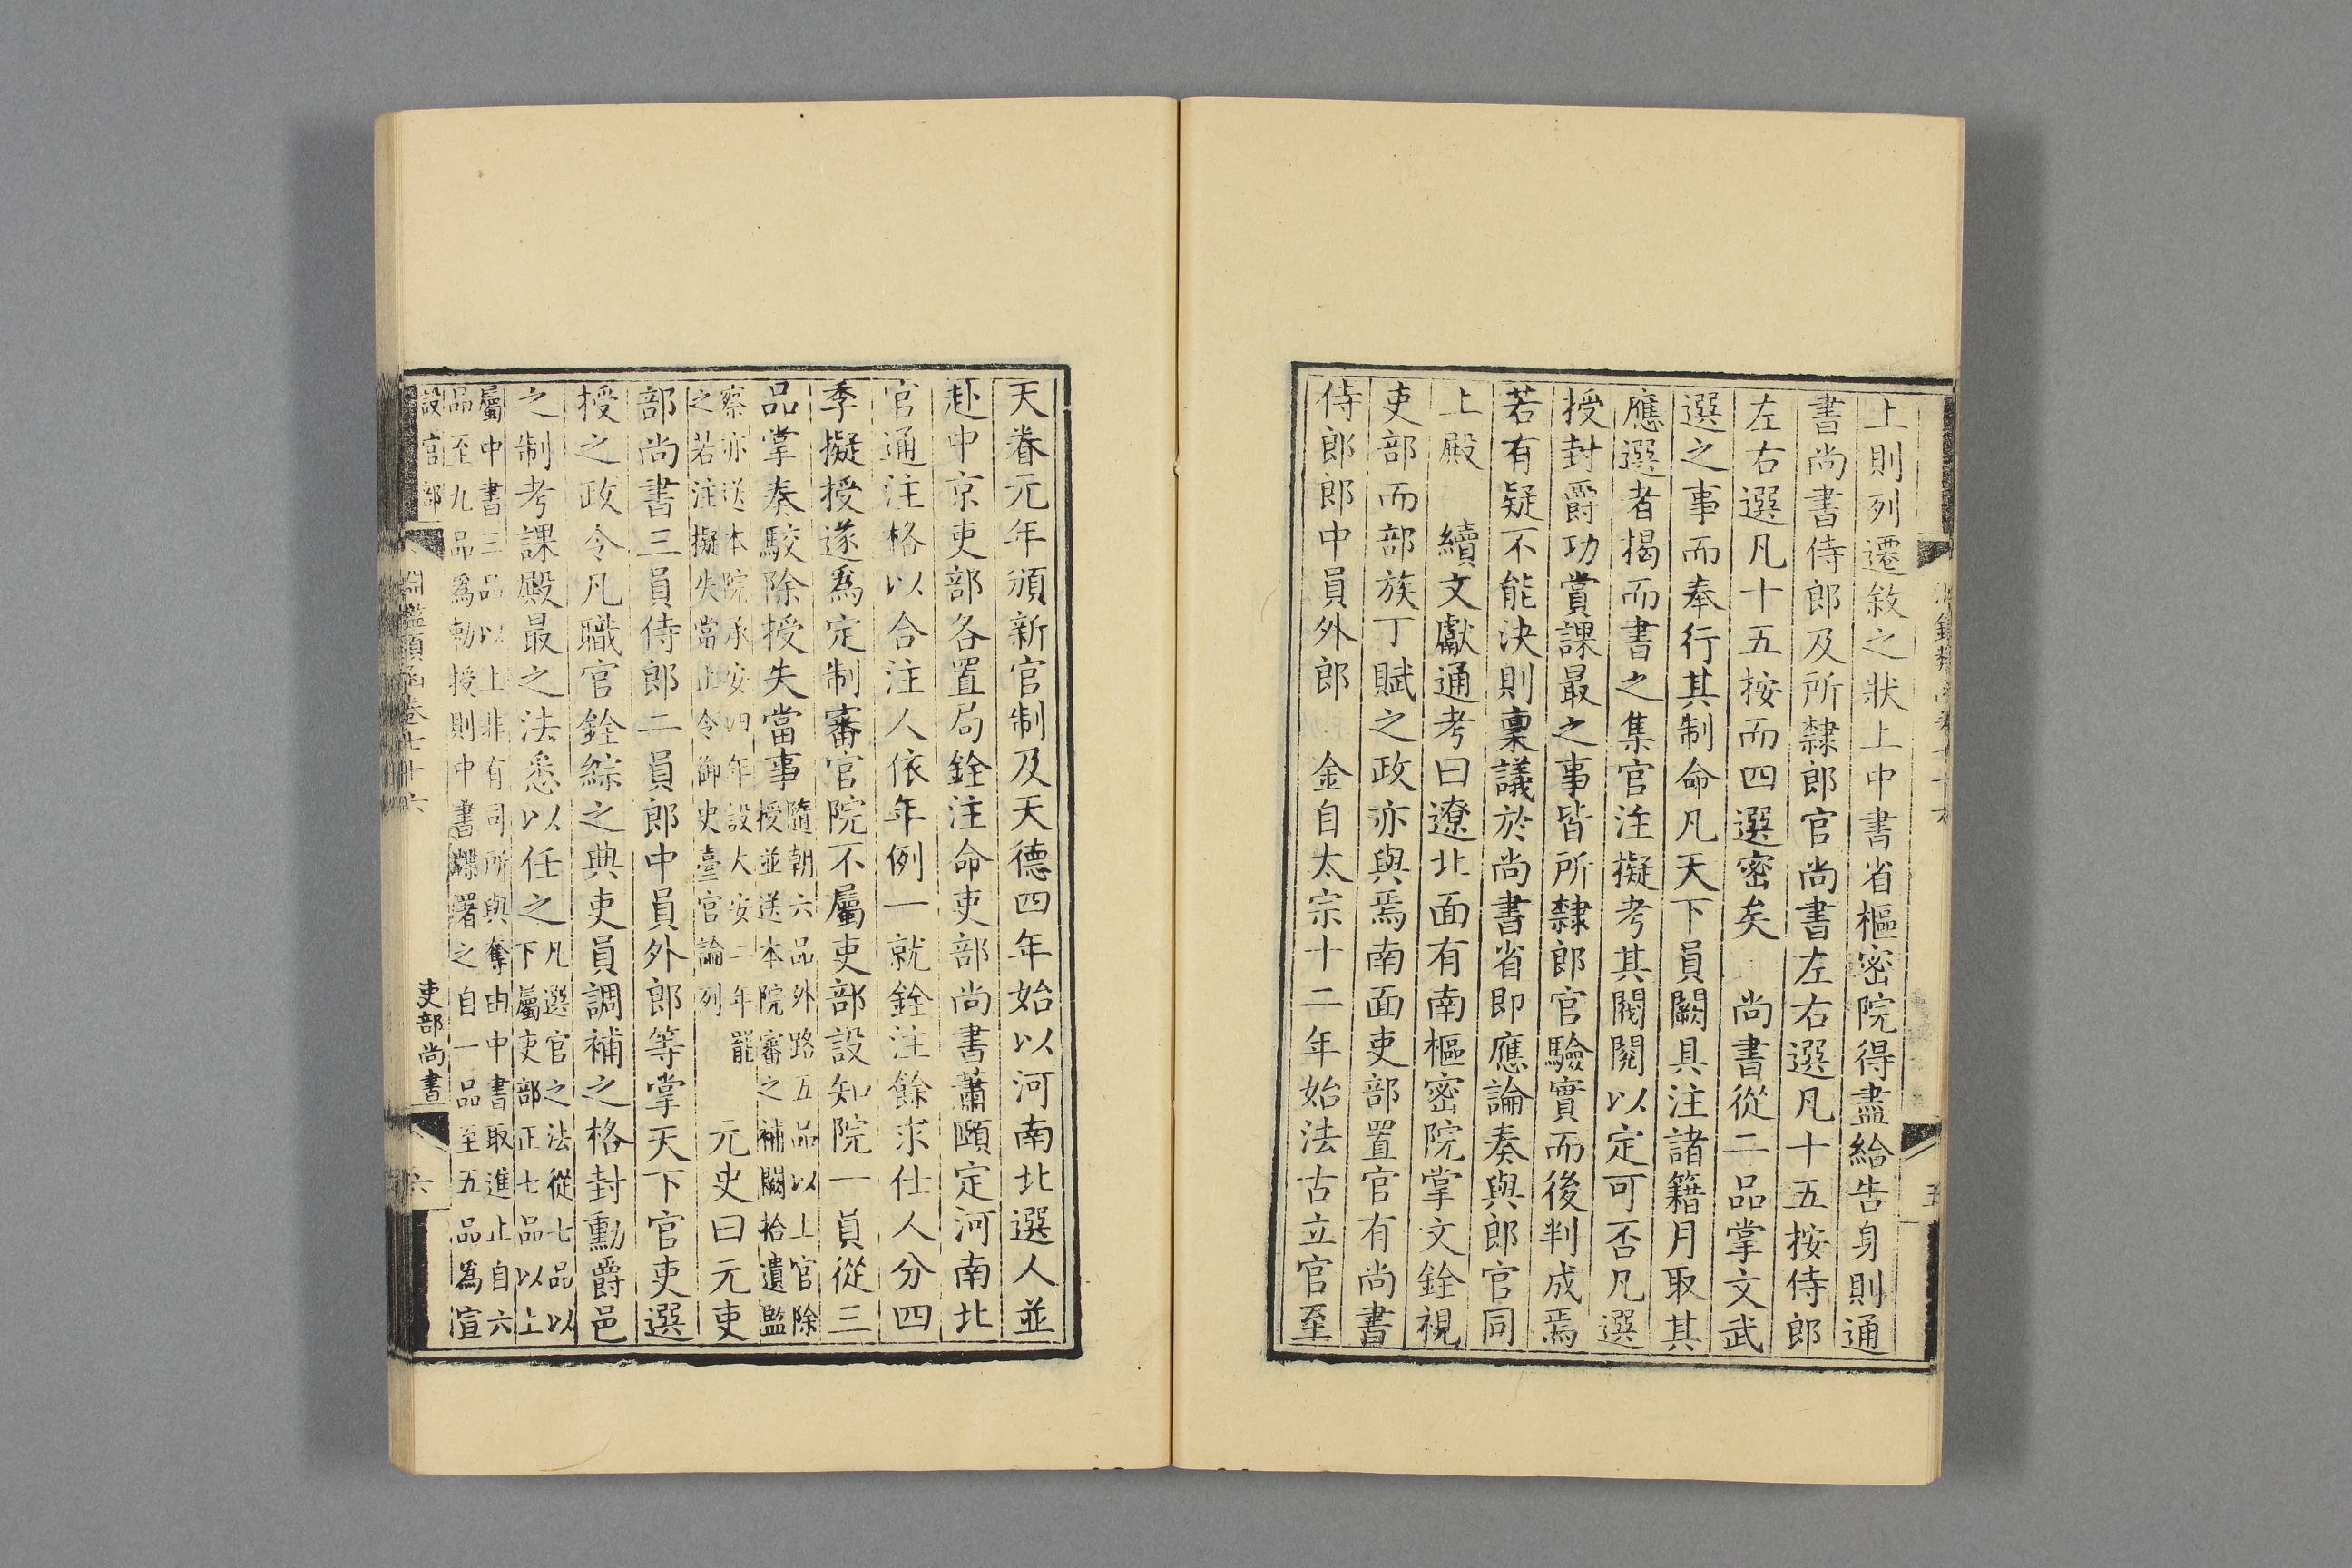 上則列遷敘之狀上中書省樞密院得盡給告身則通
書尚書侍郎及所隸郎官尚書左右選凡十五按侍郎
左右選凡十五按而四選密矣 尚書從二品掌文武
選之事而奉行其制命凡天下員闕具注諸籍月取其
應選者揭而書之集官注擬考其閥閱以定可否凡選
授封爵功賞課最之事皆所隸郎官驗實而後判成焉
若有疑不能決則稟議於尚書省即應論奏與郎官同
上殿 續文獻通考曰遼北面有南樞密院掌文銓視
吏部而部族丁賦之政亦與焉南面吏部置官有尚書
侍郎郎中員外郎 金自太宗十二年始法古立官至
五
天眷元年頒新官制及天德四年始以河南北選人並
赴中京吏部各置局銓注命吏部尚書蕭頤定河南北
官通注格以合注人依年例一就銓注餘求仕人分四
季擬授遂爲定制審官院不屬吏部設知院一員從三
品掌奏駮除授失當事隨朝六品外路五品以上官除
授並送本院審之補闕拾遺監
察亦送本院承安四年設大安二年罷
之若注擬失當止令御史臺官論列 元史曰元吏
部尚書三員侍郎二員郎中員外郎等掌天下官吏選
授之政令凡職官銓綜之典吏員調補之格封勳爵邑
之制考課殿最之法悉以任之凡選官之法從七品以
下屬吏部正七品以上
屬中書三品以上非有司所與奪由中書取進止自六
品至九品爲勅授則中書牒署之自一品至五品爲宣
設官部
淵鑑類函卷七十六
吏部尚書
六